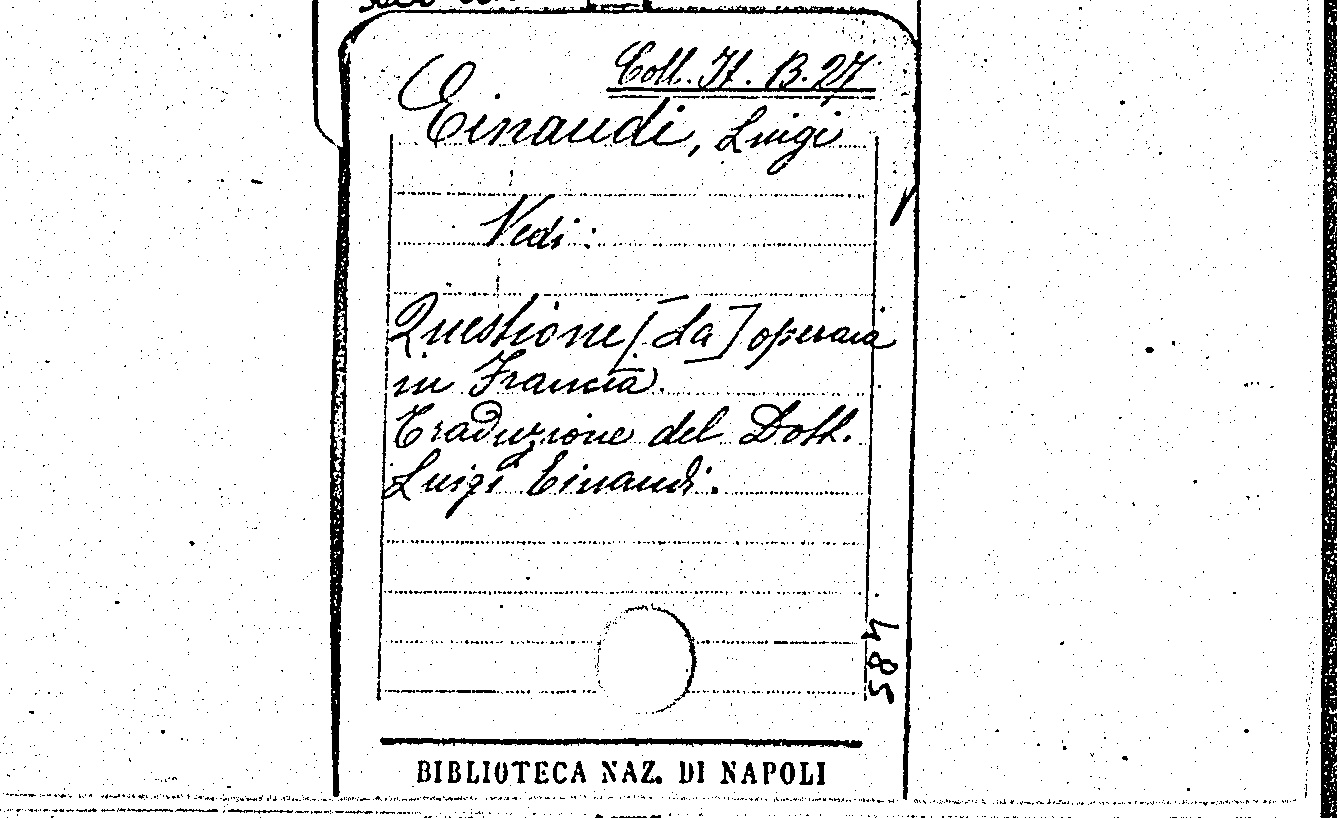 Coll. It. B. 27
Einaudi, Luigi
Vedi:
Questione [La] operaia
in Francia.
Traduzione del Dott.
Luigi Einaudi.
587
BIBLIOTECA NAZ. DI NAPOLI